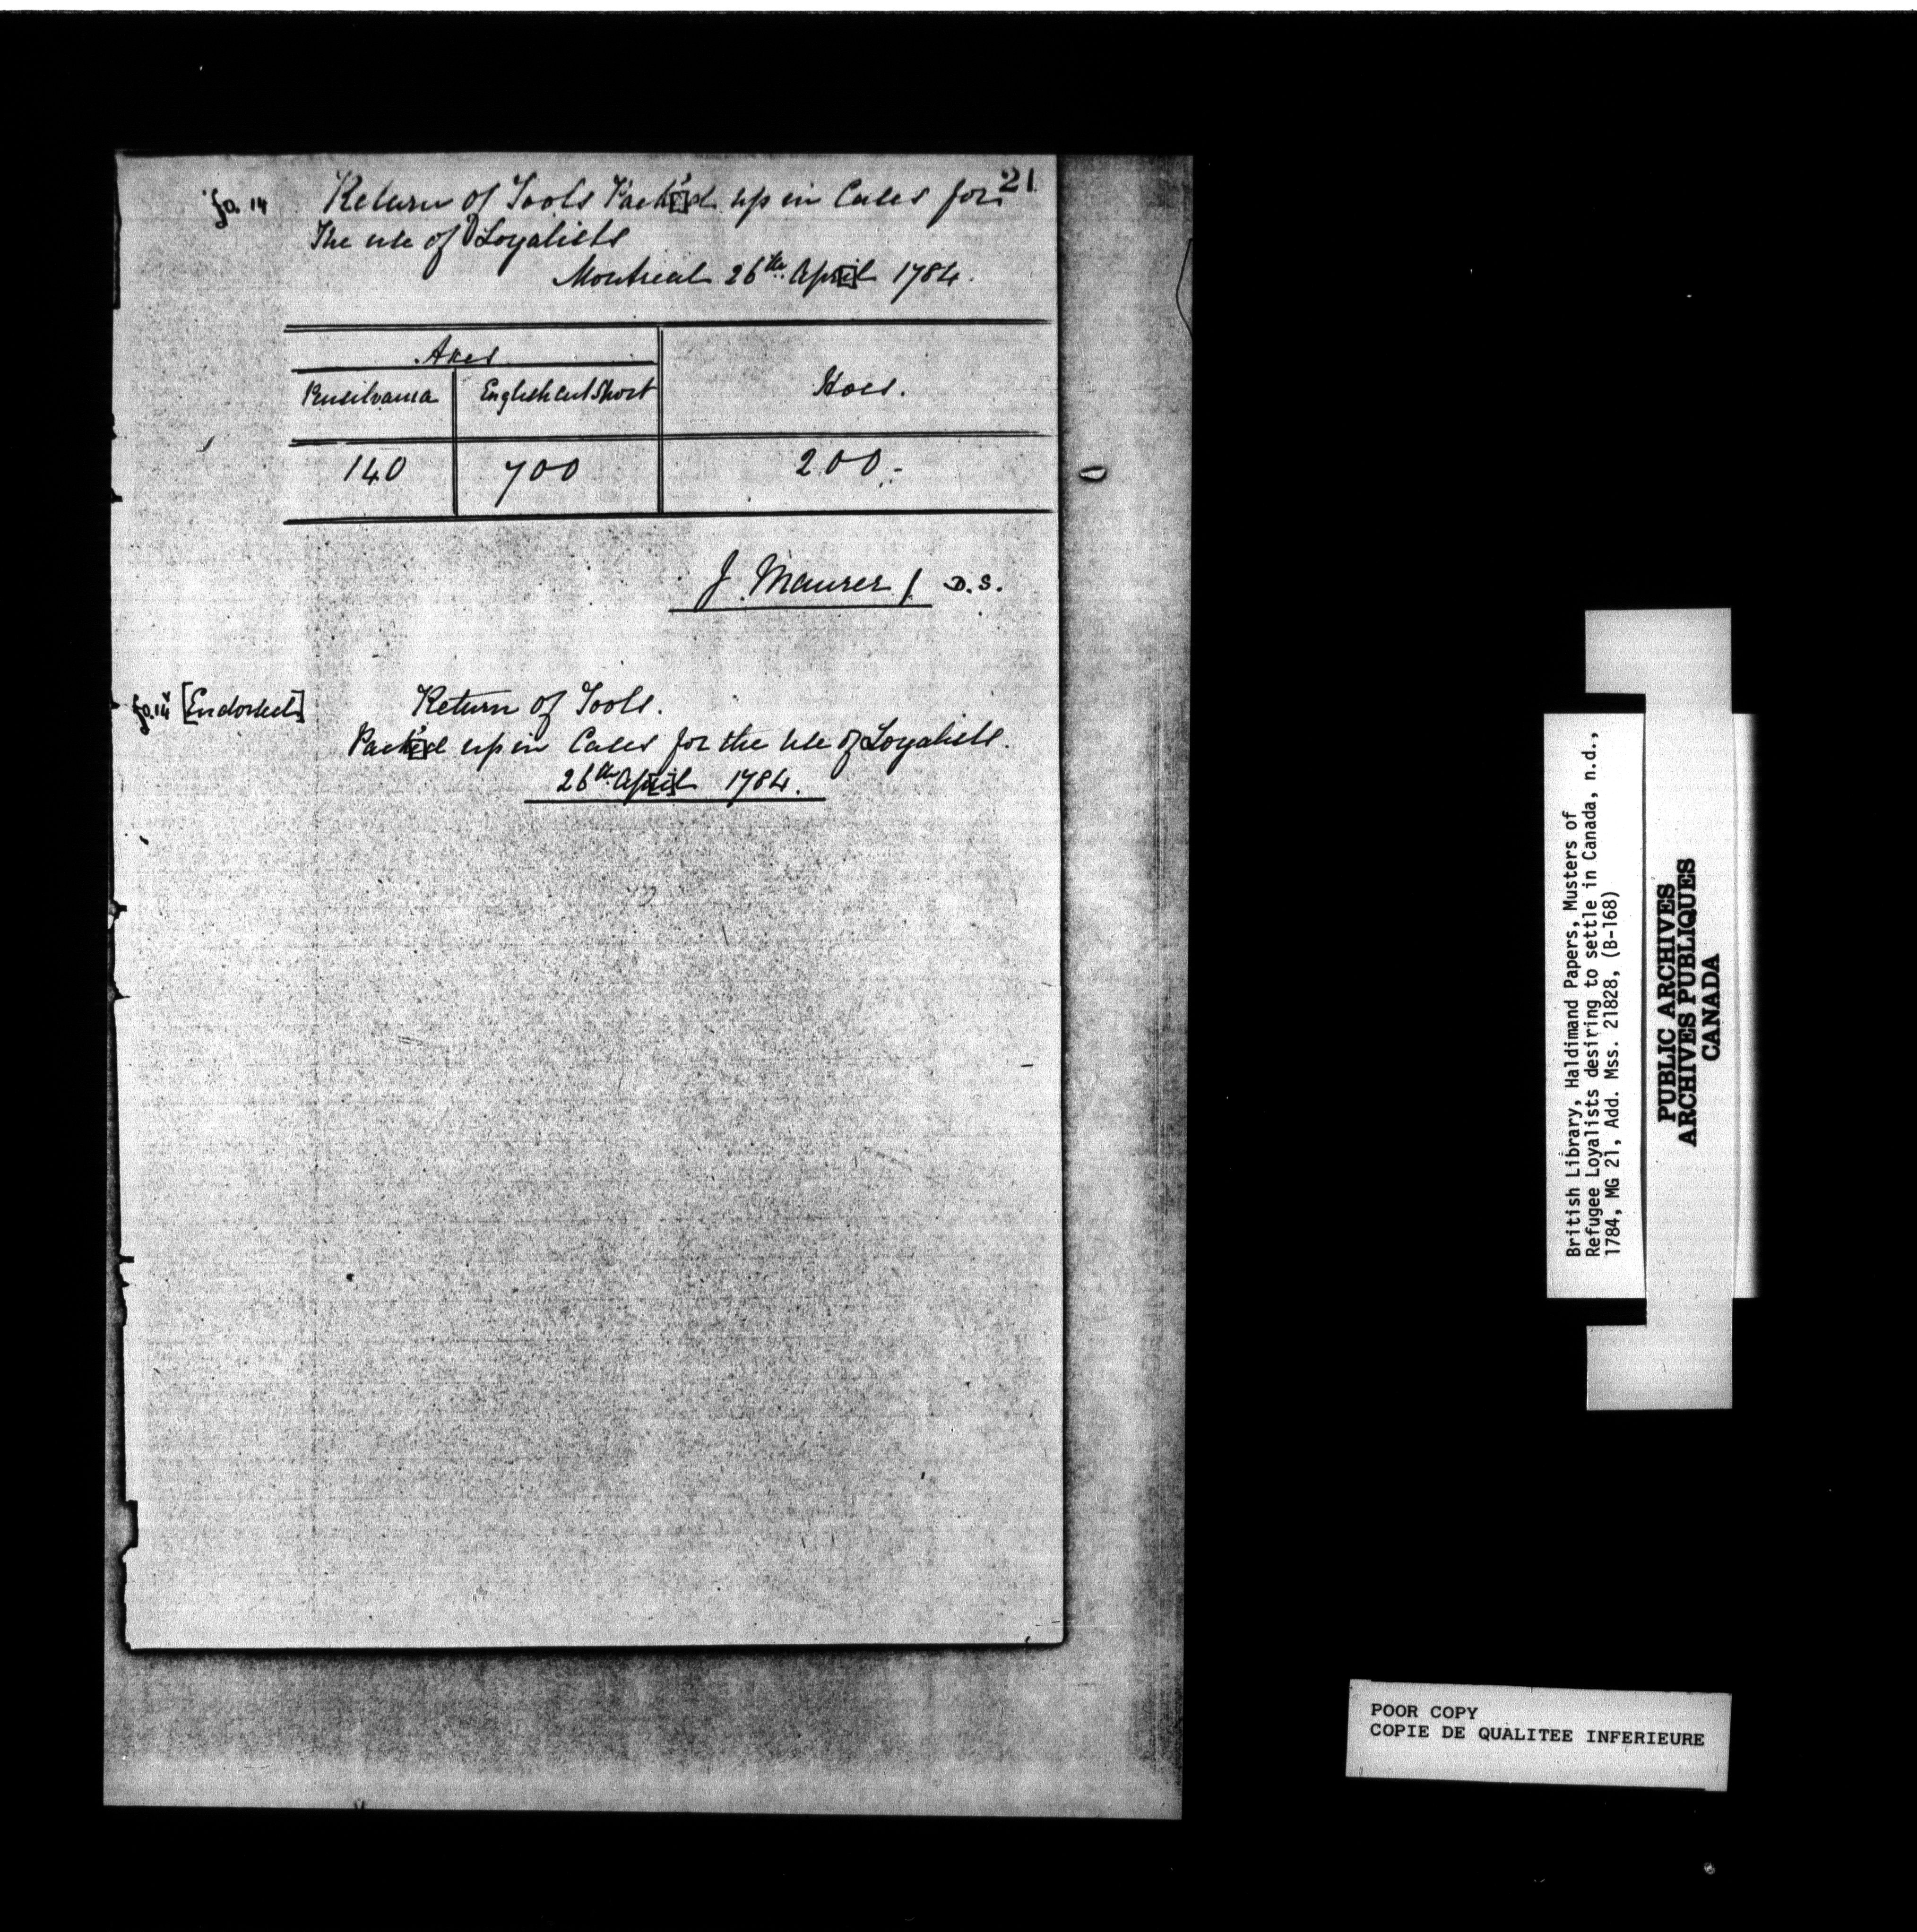 21
fo. 14 Return of Tools Pack'[e]d up in Cases for
The use of Loyalists
Montreal 26th April 1784.
Axes
Pensilvania English cut Short Hoes.
140 700 200.-
J. Maurer / D.S.
fo. 14 [Endorsed] Return of Tools.
Pack'[e]d up in Cases for the use of Loyalists.
26th Ap[ri]l 1784.
British Library, Haldimand Papers, Musters of
Refugee Loyalists desiring to settle in Canada, n.d.,
1784, MG 21, Add. Mss. 21828, (B-168)
PUBLIC ARCHIVES
ARCHIVES PUBLIQUES
CANADA
POOR COPY
COPIE DE QUALITEE INFERIEURE